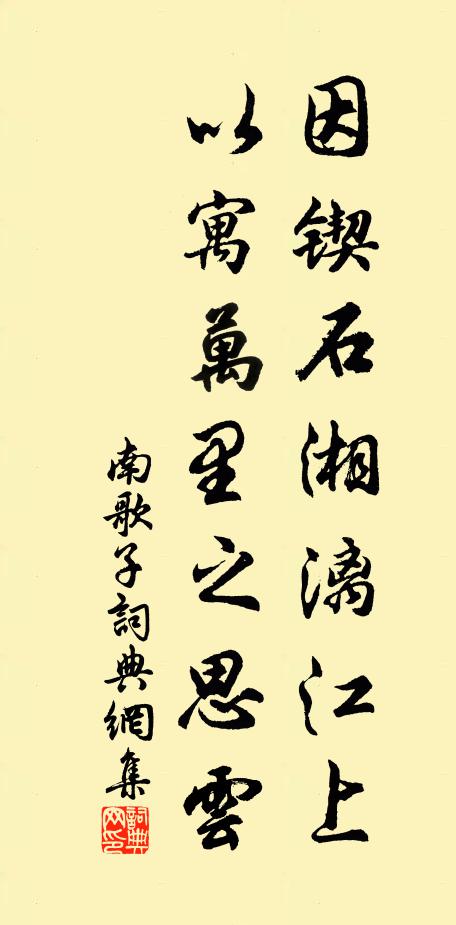 因锲石湘漓江上
以寓萬里之思雲
南歌子詞典網集
詞典
网印